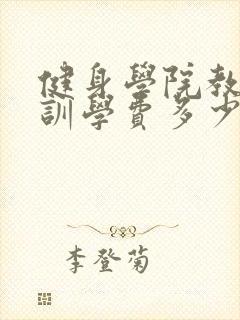 健身學院教
訓學費多少
李登菊